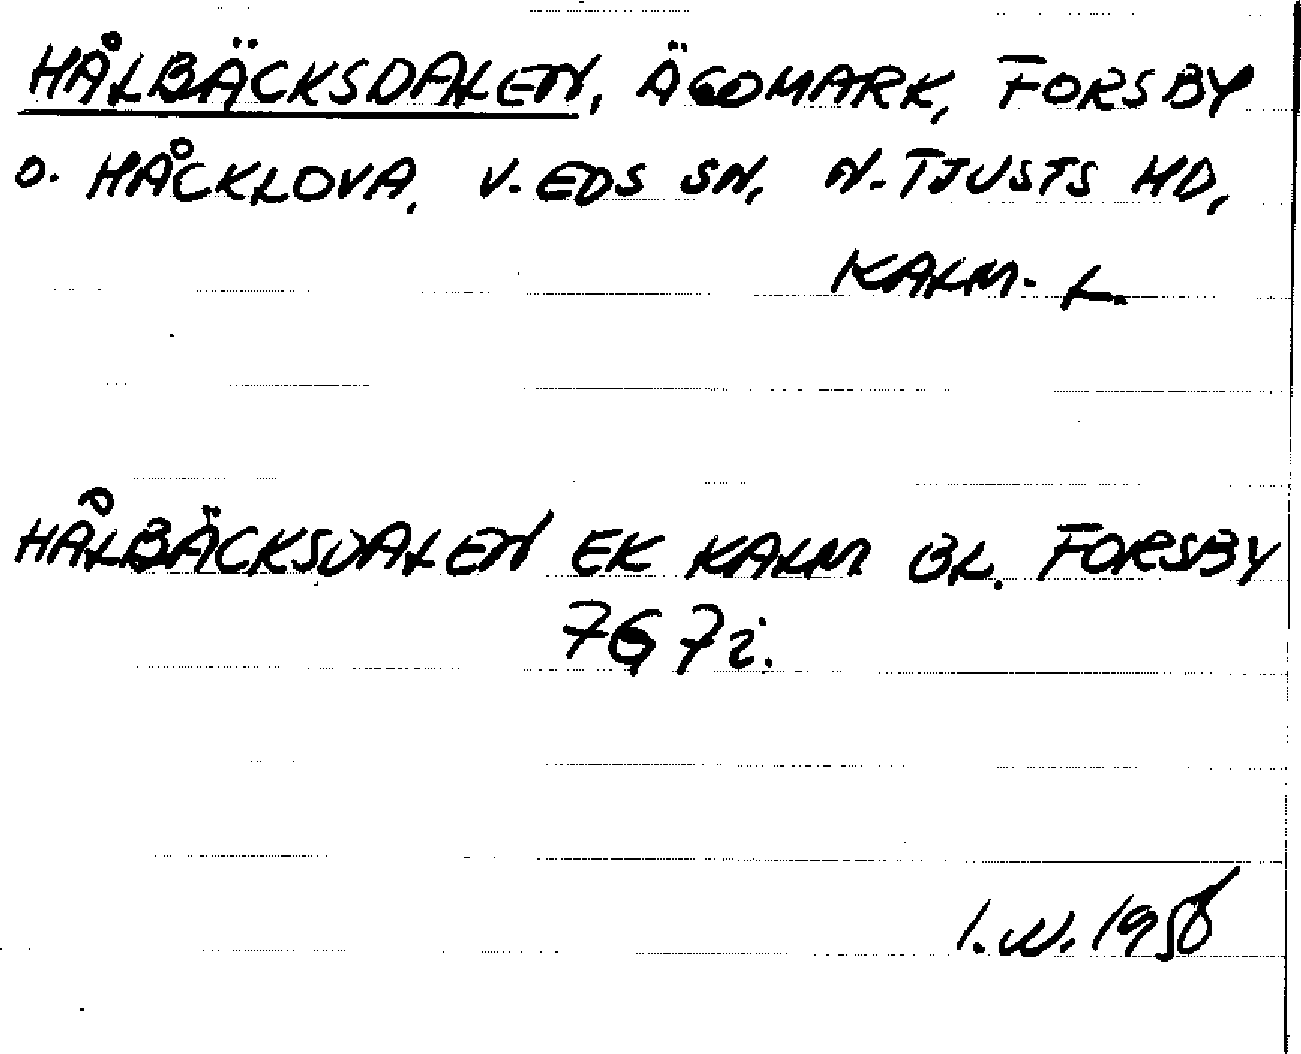 HÅLBÄCKSDALEN, ÄGOMARK, FORSBY
o. HÅCKLOVA. V. EDS SN, N. TJUSTS HD,
KALM. L.
HÅLBÄCKSDALEN EK KALM BL. FORSBY
7G 7i.
I.W. 1958